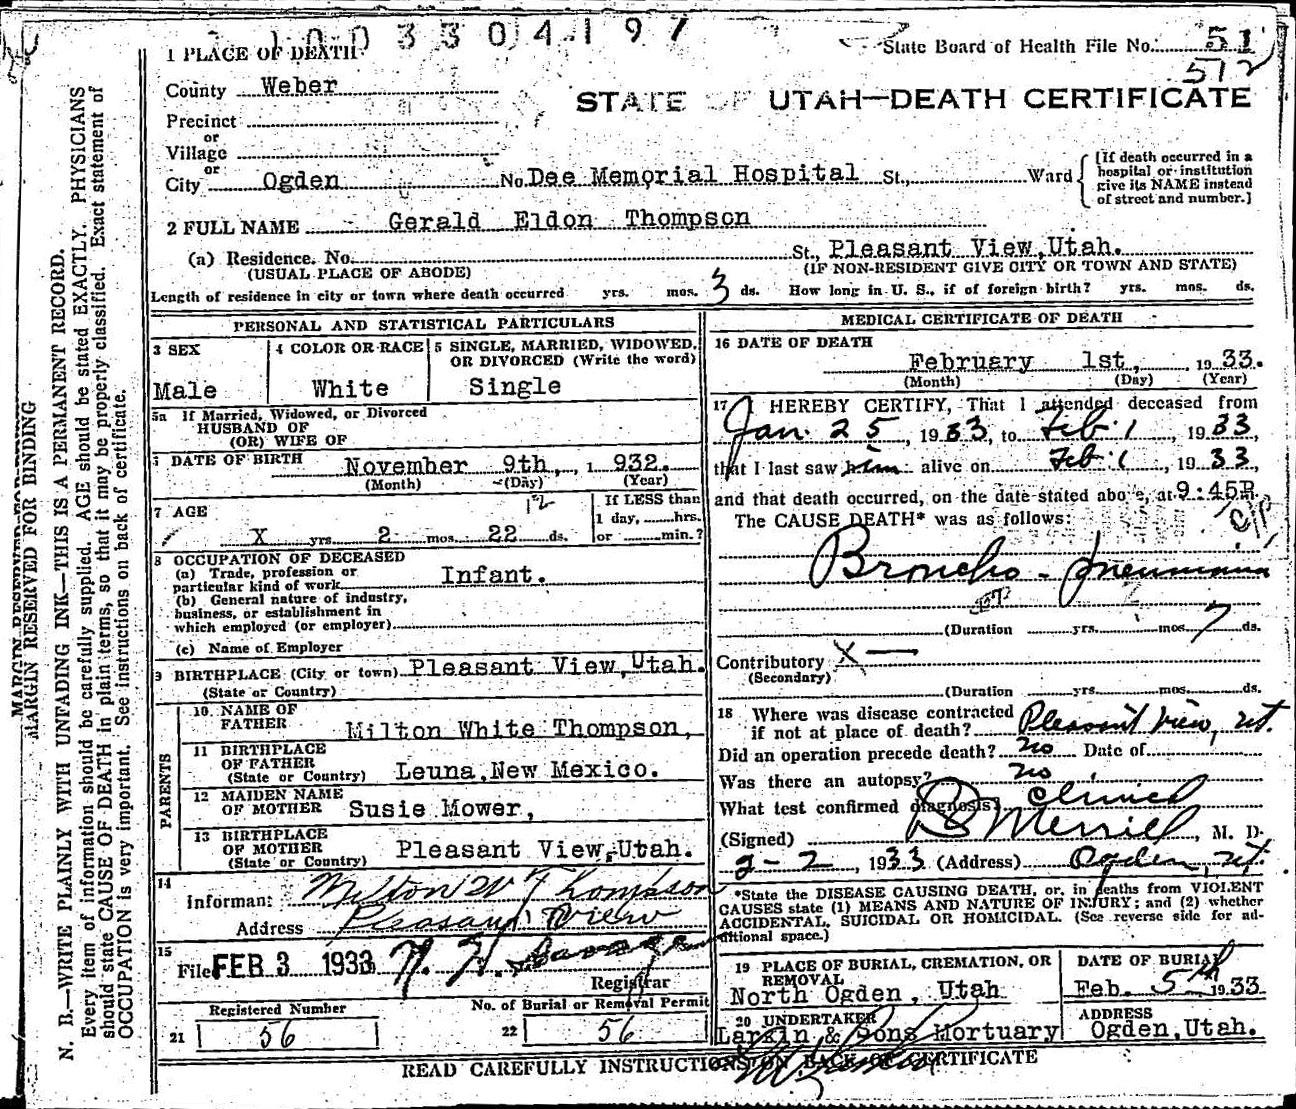 1003304197
1 PLACE OF DEATH
State Board of Health File No. 51
572
County Weber
STATE OF UTAH—DEATH CERTIFICATE
Precinct
or
Village
or
City Ogden No. Dee Memorial Hospital St., Ward
[If death occurred in a
hospital or institution
give its NAME instead
of street and number.]
2 FULL NAME Gerald Eldon Thompson
(a) Residence. No. St., Pleasant View, Utah.
(USUAL PLACE OF ABODE) (IF NON-RESIDENT GIVE CITY OR TOWN AND STATE)
Length of residence in city or town where death occurred yrs. mos. 3 ds. How long in U. S., if of foreign birth? yrs. mos. ds.
PERSONAL AND STATISTICAL PARTICULARS
3 SEX
Male
4 COLOR OR RACE
White
5 SINGLE, MARRIED, WIDOWED,
OR DIVORCED (Write the word)
Single
5a If Married, Widowed, or Divorced
HUSBAND OF
(OR) WIFE OF
DATE OF BIRTH November 9th, 1932.
(Month) (Day) (Year)
7 AGE
X yrs. 2 mos. 22 ds.
12
If LESS than
1 day, hrs.
or min.?
8 OCCUPATION OF DECEASED
(a) Trade, profession or
particular kind of work Infant.
(b) General nature of industry,
business, or establishment in
which employed (or employer)
(c) Name of Employer
9 BIRTHPLACE (City or town) Pleasant View, Utah.
(State or Country)
PARENTS
10 NAME OF
FATHER Milton White Thompson,
11 BIRTHPLACE
OF FATHER
(State or Country) Leuna, New Mexico.
12 MAIDEN NAME
OF MOTHER Susie Mower,
13 BIRTHPLACE
OF MOTHER
(State or Country) Pleasant View, Utah.
14
Informant Milton W Thompson
Address Pleasant View
15
Filed FEB 3 1933 N. H. Savage
Registrar
Registered Number
21 56
No. of Burial or Removal Permit
22 56
MEDICAL CERTIFICATE OF DEATH
16 DATE OF DEATH
February 1st, 1933.
(Month) (Day) (Year)
17 I HEREBY CERTIFY, That I attended deceased from
Jan. 25, 1933, to Feb. 1, 1933,
that I last saw him alive on Feb. 1, 1933,
and that death occurred, on the date stated above, at 9:45P m.
The CAUSE DEATH* was as follows:
Broncho-pneumonia
(Duration yrs. mos. 7 ds.
Contributory X —
(Secondary)
(Duration yrs. mos. ds.
18 Where was disease contracted
if not at place of death? Pleasant View, Ut.
Did an operation precede death? no Date of
Was there an autopsy? no
What test confirmed diagnosis? clinical
(Signed) Merrill, M. D.
2-2, 1933 (Address) Ogden, Ut.
*State the DISEASE CAUSING DEATH, or, in deaths from VIOLENT
CAUSES state (1) MEANS AND NATURE OF INJURY; and (2) whether
ACCIDENTAL, SUICIDAL OR HOMICIDAL. (See reverse side for ad-
ditional space.)
19 PLACE OF BURIAL, CREMATION, OR
REMOVAL
North Ogden, Utah
DATE OF BURIAL
Feb. 5th 1933.
20 UNDERTAKER
Larkin & Sons Mortuary
ADDRESS
Ogden, Utah.
READ CAREFULLY INSTRUCTIONS ON BACK OF CERTIFICATE
MARGIN RESERVED FOR BINDING
N. B.—WRITE PLAINLY WITH UNFADING INK—THIS IS A PERMANENT RECORD.
Every item of information should be carefully supplied. AGE should be stated EXACTLY. PHYSICIANS
should state CAUSE OF DEATH in plain terms, so that it may be properly classified. Exact statement of
OCCUPATION is very important. See instructions on back of certificate.